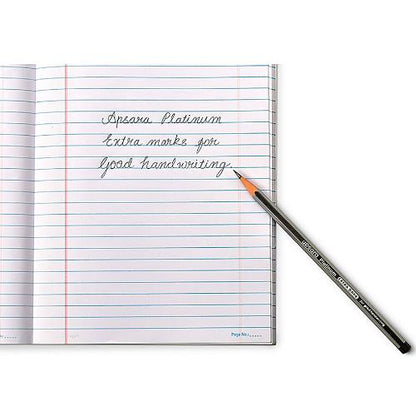 Apsara Platinum
Extra marks for
Good handwriting.
apsara Platinum
Page No.:.....